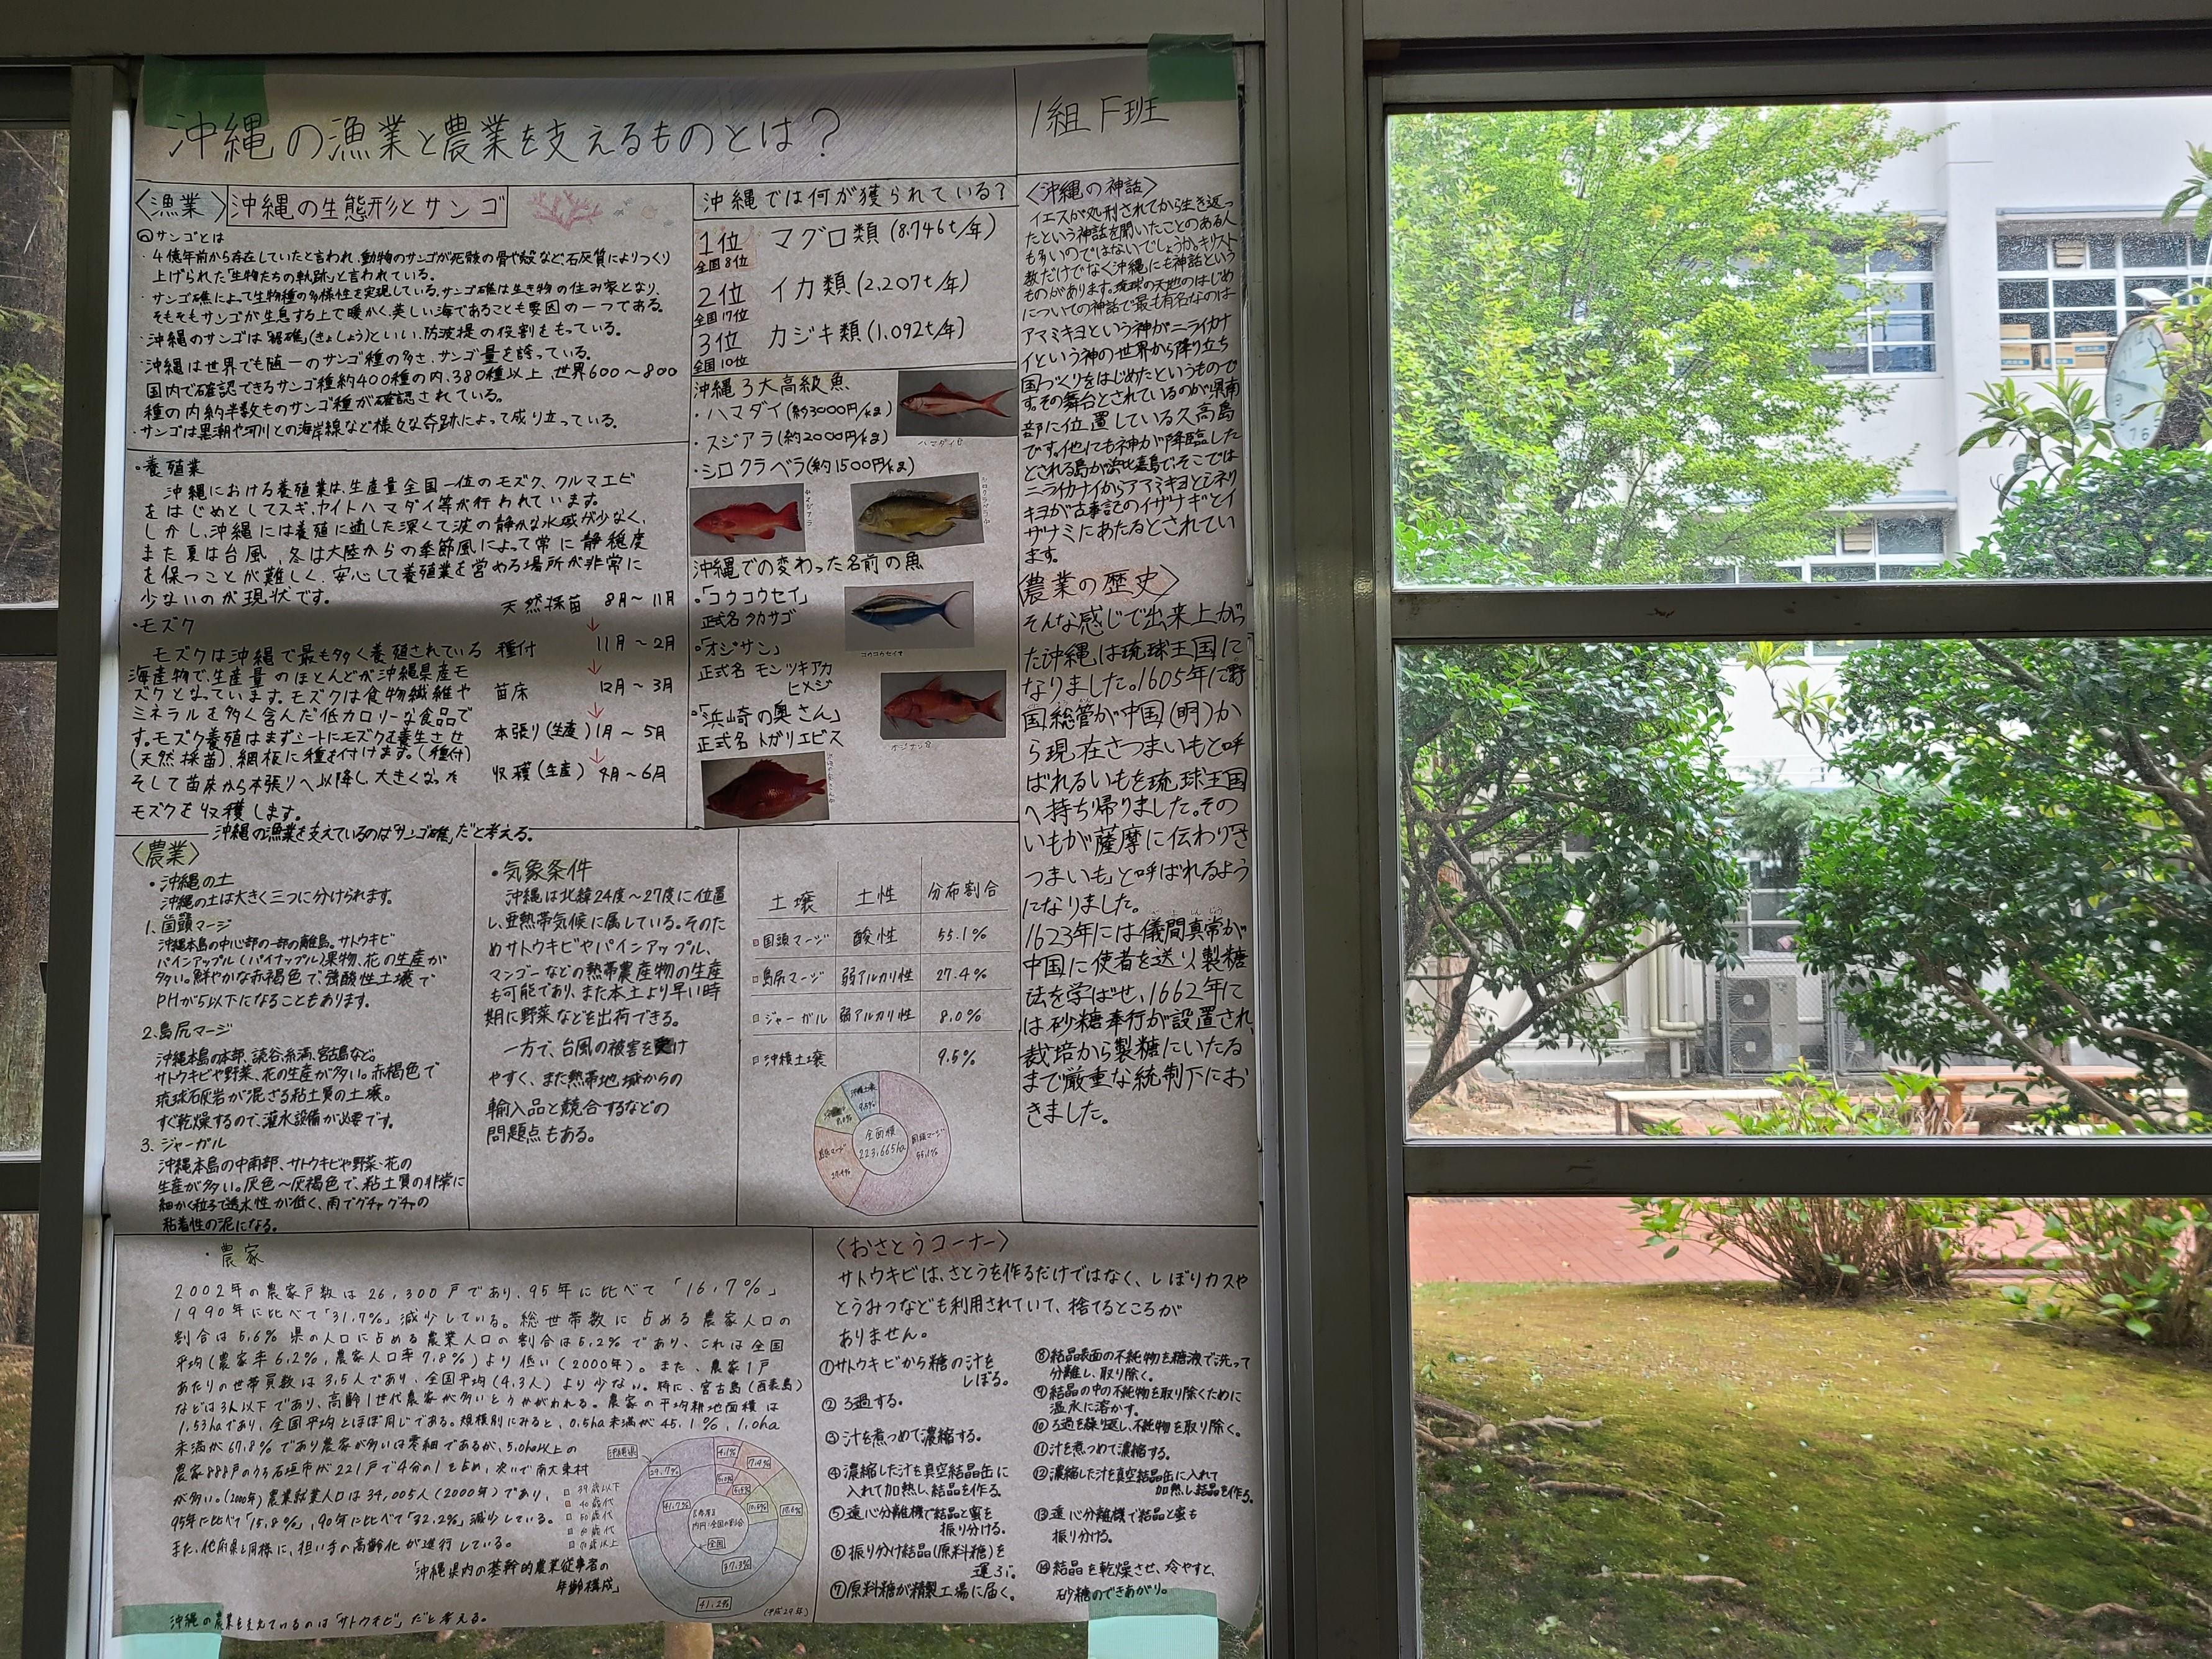 沖縄の漁業と農業を支えるものとは?
1組 F班
〈漁業〉
沖縄の生態形とサンゴ
サンゴとは
・4億年前から存在していたと言われ、動物のサンゴが死骸の骨や殻など、石灰質によりつくり
上げられた「生物たちの軌跡」と言われている。
・サンゴ礁によって生物種の多様性を実現している。サンゴ礁は生き物の住み家となり、
そもそもサンゴが生息する上で暖かく、美しい海であることも要因の一つである。
・沖縄のサンゴは「裾礁」(きょしょう)といい、防波堤の役割をもっている。
・沖縄は世界でも随一のサンゴ種の多さ、サンゴ量を誇っている。
国内で確認できるサンゴ種約400種の内、380種以上、世界600〜800
種の内約半数ものサンゴ種が確認されている。
・サンゴは黒潮や河川との海岸線など様々な奇跡によって成り立っている。
・養殖業
沖縄における養殖業は、生産量全国一位のモズク、クルマエビ
をはじめとしてスギ、ヤイトハマダイ等が行われています。
しかし、沖縄には養殖に適した深くて波の静かな水域が少なく、
また夏は台風、冬は大陸からの季節風によって常に静穏度
を保つことが難しく、安心して養殖業を営める場所が非常に
少ないのが現状です。
・モズク
モズクは沖縄で最も多く養殖されている
海産物で、生産量のほとんどが沖縄県産モ
ズクとなっています。モズクは食物繊維や
ミネラルを多く含んだ低カロリーな食品で
す。モズク養殖はまずシートにモズクを養生させ
(天然採苗)、網板に種を付けます。(種付)
そして苗床から本張りへ以降し、大きくなった
モズクを収穫します。
天然採苗 8月〜11月
↓
種付 11月〜2月
↓
苗床 12月〜3月
↓
本張り(生産) 1月〜5月
↓
収穫(生産) 4月〜6月
沖縄の漁業を支えているのは「サンゴ礁」だと考える。
沖縄では何が獲られている?
1位 マグロ類 (8.746t/年)
全国8位
2位 イカ類 (2,207t/年)
全国17位
3位 カジキ類 (1,092t/年)
全国10位
沖縄3大高級魚
・ハマダイ(約3000円/kg)
・スジアラ(約2000円/kg)
・シロクラベラ(約1500円/kg)
沖縄での変わった名前の魚
・「コウコウセイ」
正式名 タカサゴ
コウコウセイ↑
・「オジサン」
正式名 モンツキアカ
ヒメジ
オジサン↑
・「浜崎の奥さん」
正式名 トガリエビス
〈沖縄の神話〉
イエスが処刑されてから生き返っ
たという神話を聞いたことのある人
も多いのではないでしょうか。キリスト
教だけでなく沖縄にも神話という
ものがあります。琉球の天地のはじめ
についての神話で最も有名なのは
アマミキヨという神がニライカナ
イという神の世界から降り立ち
国づくりをはじめたというもので
す。その舞台とされているのが県南
部に位置している久高島
です。他にも神が降臨した
とされる島が浜比嘉島で、そこでは
ニライカナイからアアミキヨとシネリ
キヨが古事記のイザナギとイ
ザナミにあたるとされてい
ます。
〈農業の歴史〉
そんな感じで出来上がっ
た沖縄は琉球王国に
なりました。1605年に野
国総管が中国(明)か
ら現在さつまいもと呼
ばれるいもを琉球王国
へ持ち帰りました。その
いもが薩摩に伝わり「さ
つまいも」と呼ばれるよう
になりました。
1623年には儀間真常が
中国に使者を送り製糖
法を学ばせ、1662年に
は砂糖奉行が設置され
栽培から製糖にいたる
まで厳重な統制下にお
きました。
〈農業〉
・沖縄の土
沖縄の土は大きく三つに分けられます。
1. 国頭マージ
沖縄本島の中心部の一部の離島。サトウキビ
パインアップル(パイナップル)果物、花の生産が
多い。鮮やかな赤褐色で、強酸性土壌で
PHが5以下になることもあります。
2. 島尻マージ
沖縄本島の本部、読谷、糸満、宮古島など。
サトウキビや野菜、花の生産が多い。赤褐色で
琉球石灰岩が混ざる粘土質の土壌。
すぐ乾燥するので、灌水設備が必要です。
3. ジャーガル
沖縄本島の中南部、サトウキビや野菜・花の
生産が多い。灰色〜灰褐色で、粘土質の非常に
細かく粒子で透水性が低く、雨でグチャグチャの
粘着性の泥になる。
・気象条件
沖縄は北緯24度〜27度に位置
し、亜熱帯気候に属している。そのた
めサトウキビやパインアップル、
マンゴーなどの熱帯農産物の生産
も可能であり、また本土より早い時
期に野菜などを出荷できる。
一方で、台風の被害を受け
やすく、また熱帯地域からの
輸入品と競合するなどの
問題点もある。
土壌 土性 分布割合
国頭マージ 酸性 55.1%
島尻マージ 弱アルカリ性 27.4%
ジャーガル 弱アルカリ性 8.0%
沖積土壌 9.5%
全面積
223,665ha
国頭マージ
55.1%
島尻マージ
27.4%
沖積土壌
9.5%
・農家
2002年の農家戸数は26,300戸であり、95年に比べて「16,7%」
1990年に比べて「31,7%」減少している。総世帯数に占める農家人口の
割合は5,6% 県の人口に占める農業人口の割合は5,2%であり、これは全国
平均(農家率6,2%,農家人口率7,8%)より低い(2000年)。また、農家1戸
あたりの世帯員数は3,5人であり、全国平均(4,3人)より少ない。特に、宮古島(西表島)
などは3人以下であり、高齢1世代農家が多いとうかがわれる。農家の平均耕地面積は
1,53haであり、全国平均とほぼ同じである。規模別にみると、0,5ha未満が45,1%,1,0ha
未満が67,8%であり農家が多いは零細であるが、5,0ha以上の
農家888戸のうち石垣市が221戸で4分の1を占め、次いで南大東村
が多い。(2000年)農業就業人口は34,005人(2000年)であり、
95年に比べ「15,8%」,90年に比べて「32,2%」減少している。
また、他府県と同様に、担い手の高齢化が進行している。
「沖縄県内の基幹的農業従事者の
年齢構成」
39歳以下
40歳代
50歳代
60歳代
70歳以上
沖縄県
全国
41.2%
37.3%
(平成29年)
沖縄の農業を支えているのは「サトウキビ」だと考える。
〈おさとうコーナー〉
サトウキビは、さとうを作るだけではなく、しぼりカスや
とうみつなども利用されていて、捨てるところが
ありません。
①サトウキビから糖の汁を
しぼる。
②ろ過する。
③汁を煮つめて濃縮する。
④濃縮した汁を真空結晶缶に
入れて加熱し、結晶を作る。
⑤遠心分離機で結晶と蜜を
振り分ける。
⑥振り分け結晶(原料糖)を
運ぶ。
⑦原料糖が精製工場に届く。
⑧結晶表面の不純物を糖液で洗って
分離し、取り除く。
⑨結晶の中の不純物を取り除くために
温水に溶かす。
⑩ろ過を繰り返し、不純物を取り除く。
⑪汁を煮つめて濃縮する。
⑫濃縮した汁を真空結晶缶に入れて
加熱し結晶を作る。
⑬遠心分離機で結晶と蜜も
振り分ける。
⑭結晶を乾燥させ、冷やすと、
砂糖のできあがり。